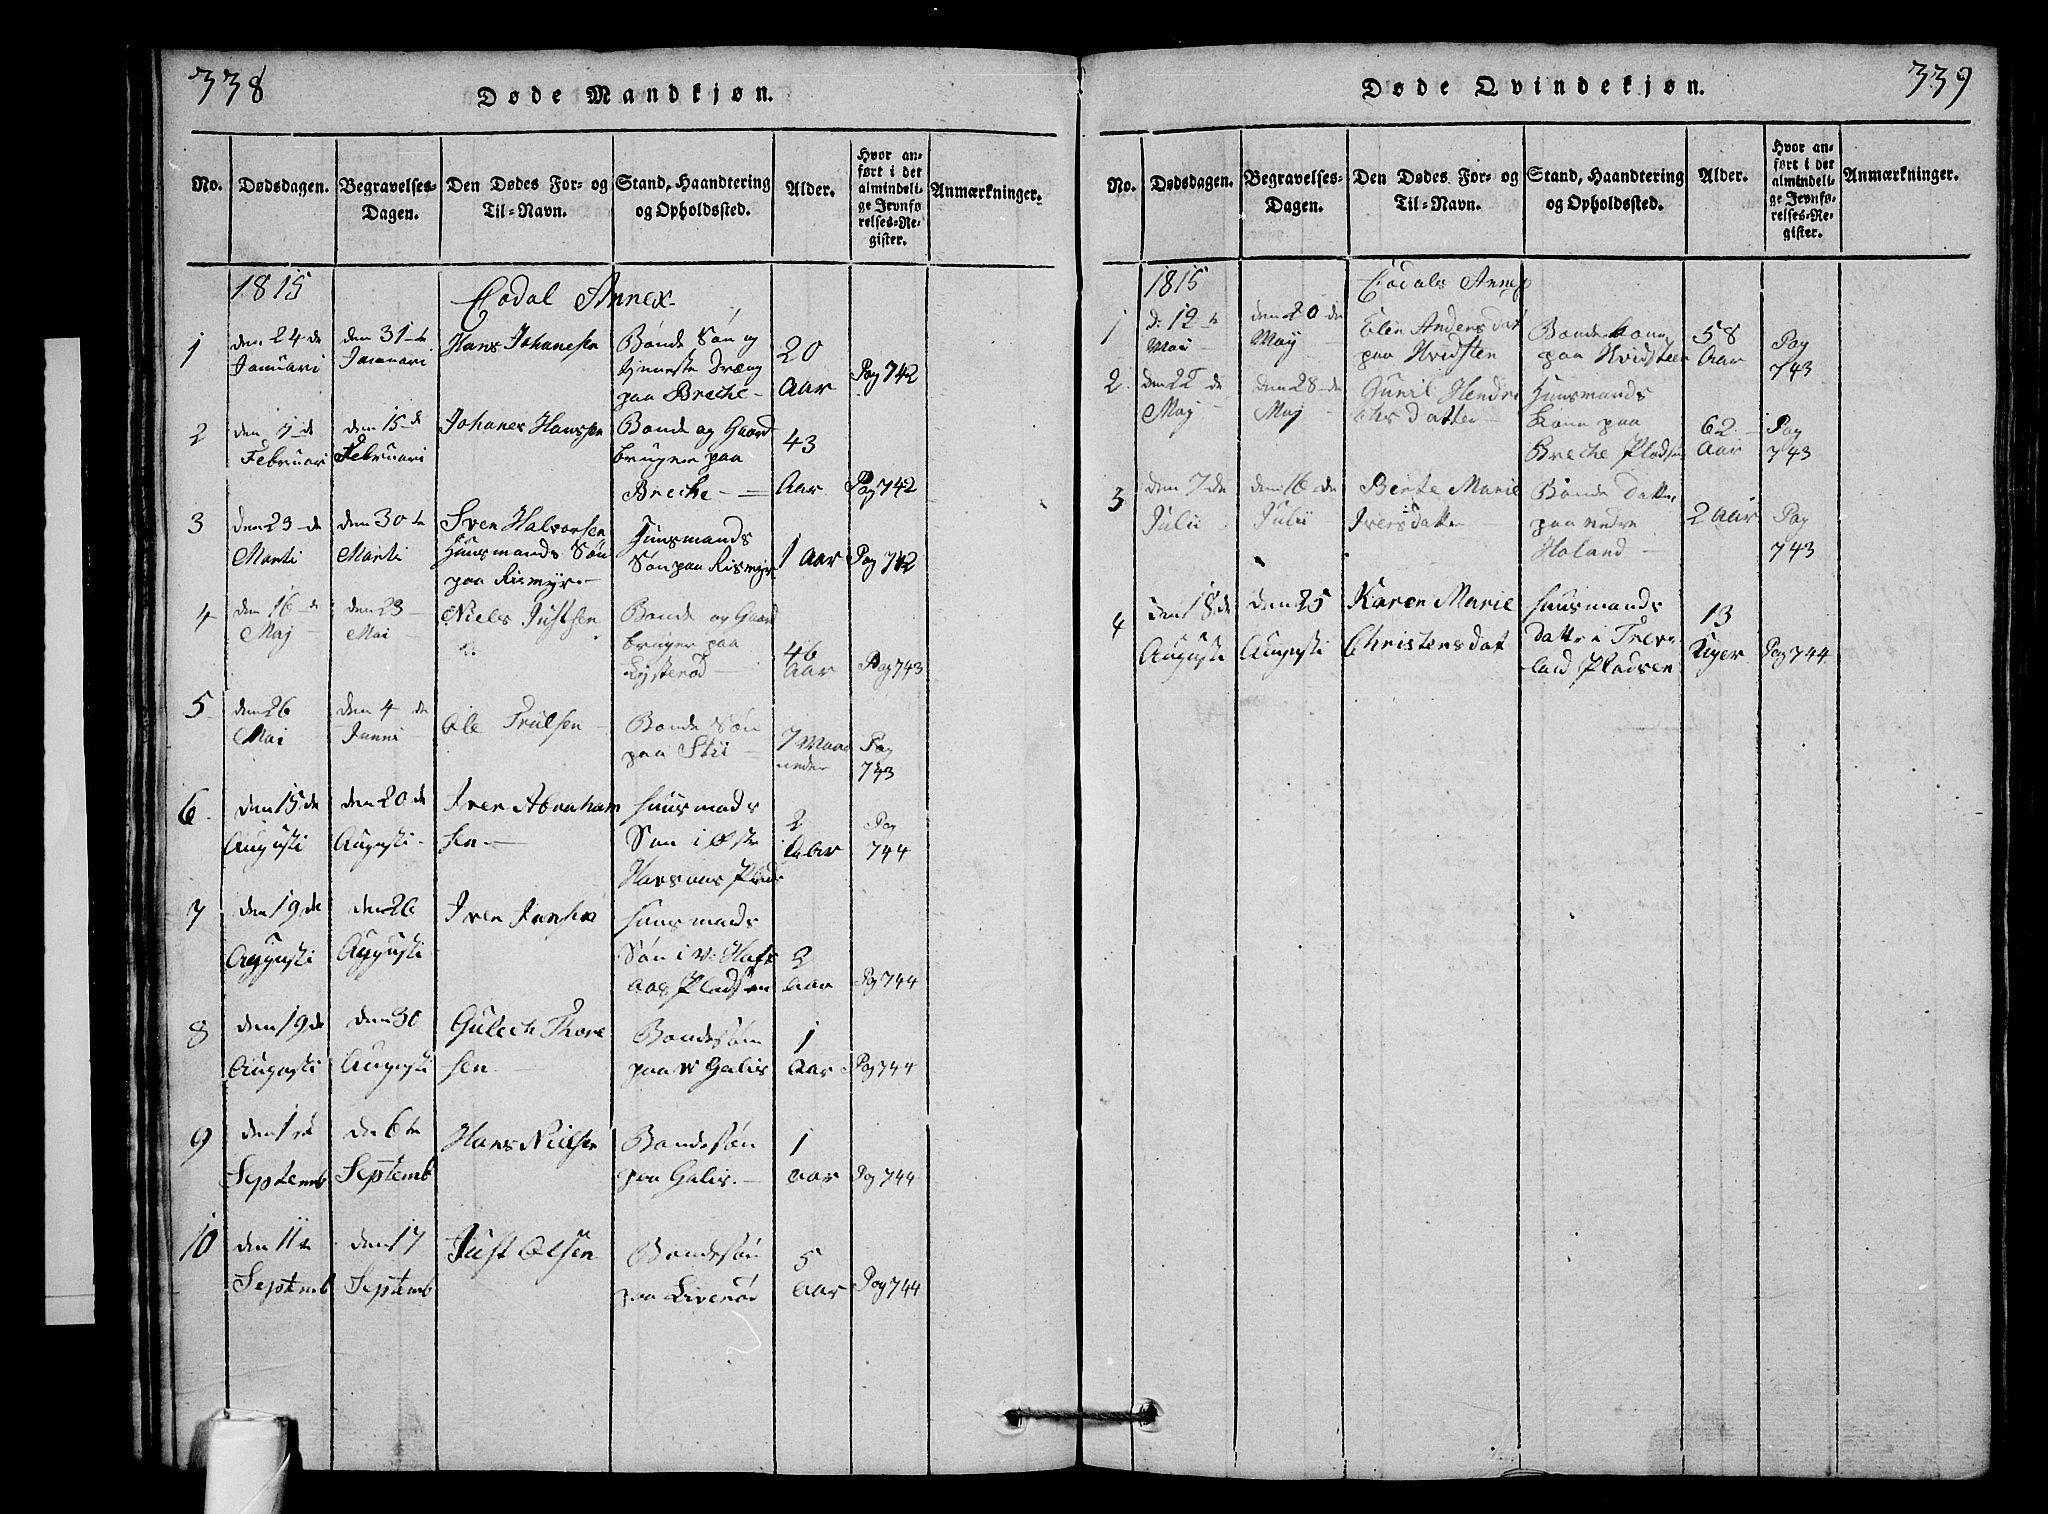 338
Døde Mandkjøn.
No. Dødsdagen. Begravelses-Dagen. Den Dødes For- og Til-Navn. Stand, Haandtering og Opholdssted. Alder. Hvor anført i det almindelige Jevnførelses-Register. Anmærkninger.
1815 Codal Annex
1 den 24de Januari den 31te Januari Hans Johanesen Bonde Søn og tjeneste Dreng paa Breche 20 Aar Pag 742
2 Februari den 15de Februari Johanes Hanssen Bonde og Gaardbruger paa Breche 43 Aar Pag 742
3 den 23de Marti den 30te Marti Sven Halvorsen Huusmands Søn paa Rismyr Huusmands Søn paa Rismyr 1 Aar Pag 742
4 den 16de Maj den 23 Mai Niels Justsen Bonde og Gaardbruger paa Lysterød 46 Aar Pag 743
5 den 26 Mai den 4de Junni Ole Trulsen Bonde Søn paa Stii 7 Maaneder Pag 743
6 den 15de Augusti den 20de Augusti Iver Abrahamsen Huusmands Søn i Øste Plads 2 Aar Pag 744
7 den 19de Augusti den 26 Augusti Iver Jansen Huusmands Søn i v: Hafsaas Pladsen 2 aar Pag 744
8 den 19de Augusti den 30 Augusti Gulech Thoresen Bondesøn paa v Galis 1 aar Pag 744
9 den 1ste Septemb den 6te Septemb Hans Nielsen Bondesøn paa Galis 1 aar Pag 744
10 den 11te Septemb den 17 Septemb Just Olsen Bondesøn paa Liverød 5 aar Pag 744
339
Døde Qvindekjøn.
No. Dødsdagen. Begravelses-Dagen. Den Dødes For- og Til-Navn. Stand, Haandtering og Opholdssted. Alder. Hvor anført i det almindelige Jevnførelses-Register. Anmærkninger.
1815 Codals Annex
1 d: 12te Mai den 20de Maij Elin Andersdat paa Hvidsten Bondekone paa Hvidsteen 58 Aar Pag 743
2. den 22de Maj den 28de Maj Gunil Hendrichsdatter Huusmands Kone paa Breche Pladsen 62 Aar Pag 743
3 den 7de Julii den 16de Julii Berte Marie Iversdatter Bonde Datter paa nedre Holand 2 Aar Pag 743
4 den 18de Augusti den 25 Augusti Karen Marie Christensdat Huusmands Datter i Pladsen 13 Uger Pag 744